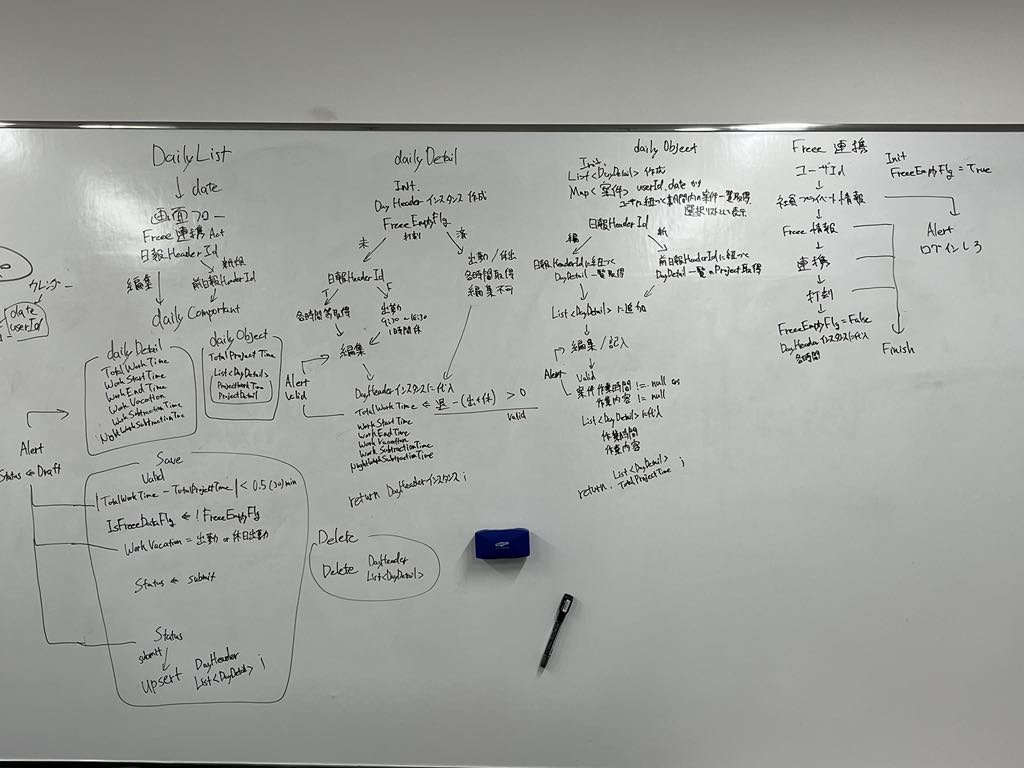 DailyList
↓ date
画面フロー
Freee 連携 Act
日報HeaderId
編集
新規
前日報HeaderId
daily Component
カレンダー
date
userId
daily Detail
TotalWorkTime
WorkStartTime
WorkEndTime
WorkVacation
WorkSubtractionTime
NightWorkSubtractionTime
daily Object
TotalProject Time
List<DayDetail>
ProjectWorkTime
ProjectDetail
Alert
Status ← Draft
Save
Valid
|TotalWorkTime - TotalProjectTime| < 0.5 (30) min
IsFreeeDataFlg ← ! FreeeEmptyFlg
WorkVacation = 出勤 or 休日出勤
Status ← submit
Status
submit
upsert DayHeader
List<DayDetail> ;
dailyDetail
Init.
Day Header インスタンス 作成
FreeeEmptyFlg
打刻
未
済
日報HeaderId
T
F
各時間等取得
出勤
9:30 ~ 18:30
1時間休
出勤 / 休出
各時間取得
編集不可
編集
Alert
Valid
DayHeaderインスタンスに代入
TotalWorkTime ← 退 - (出+休) > 0
Valid
WorkStartTime
WorkEndTime
WorkVacation
WorkSubtractionTime
NightWorkSubtractionTime
return DayHeaderインスタンス ;
Delete
Delete DayHeader
List<DayDetail>
daily Object
Init.
List<DayDetail> 作成
Map<案件> userId, date から
ユーザに紐づく期間内の案件一覧取得
選択リストとして表示
日報HeaderId
編
新
日報HeaderIdに紐づく
DayDetail一覧取得
前日報HeaderIdに紐づく
DayDetail一覧のProject取得
List<DayDetail> に追加
編集 / 記入
Alert
Valid
案件作業時間 != null &&
作業内容 != null
List<DayDetail>に代入
作業時間
作業内容
return List<DayDetail>
TotalProjectTime ;
Freee 連携
ユーザId
社員プライベート情報
Freee 情報
連携
打刻
FreeeEmptyFlg = False
DayHeaderインスタンスに代入
各時間
Init
FreeeEmptyFlg = True
Alert
ログインしろ
Finish